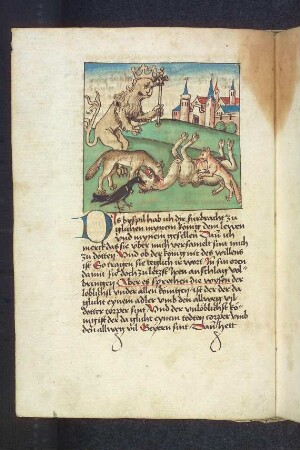 Dis byspil hab ich dir furbracht zu
glichen mynem konig dem leuwen
vnd mynen gesellen Dan ich
merck das sie vber mich versamelt sint mich
zu dotten Vnd ob der konig mit des willens
ist So tragen sie teglich ir wort In sin oren
damit sie doch zu letzst iren anschlag vol
bringen Aber es sprechen die wysen der
loblichst vnder allen konigen ist der der da
glicht eynem adler vmb den allweg vil
dotter corper sint Vnd der vnloblichst ko
nig ist der da glicht eynem todten corper vmb
den allweg vil Geyern sint Dan hett